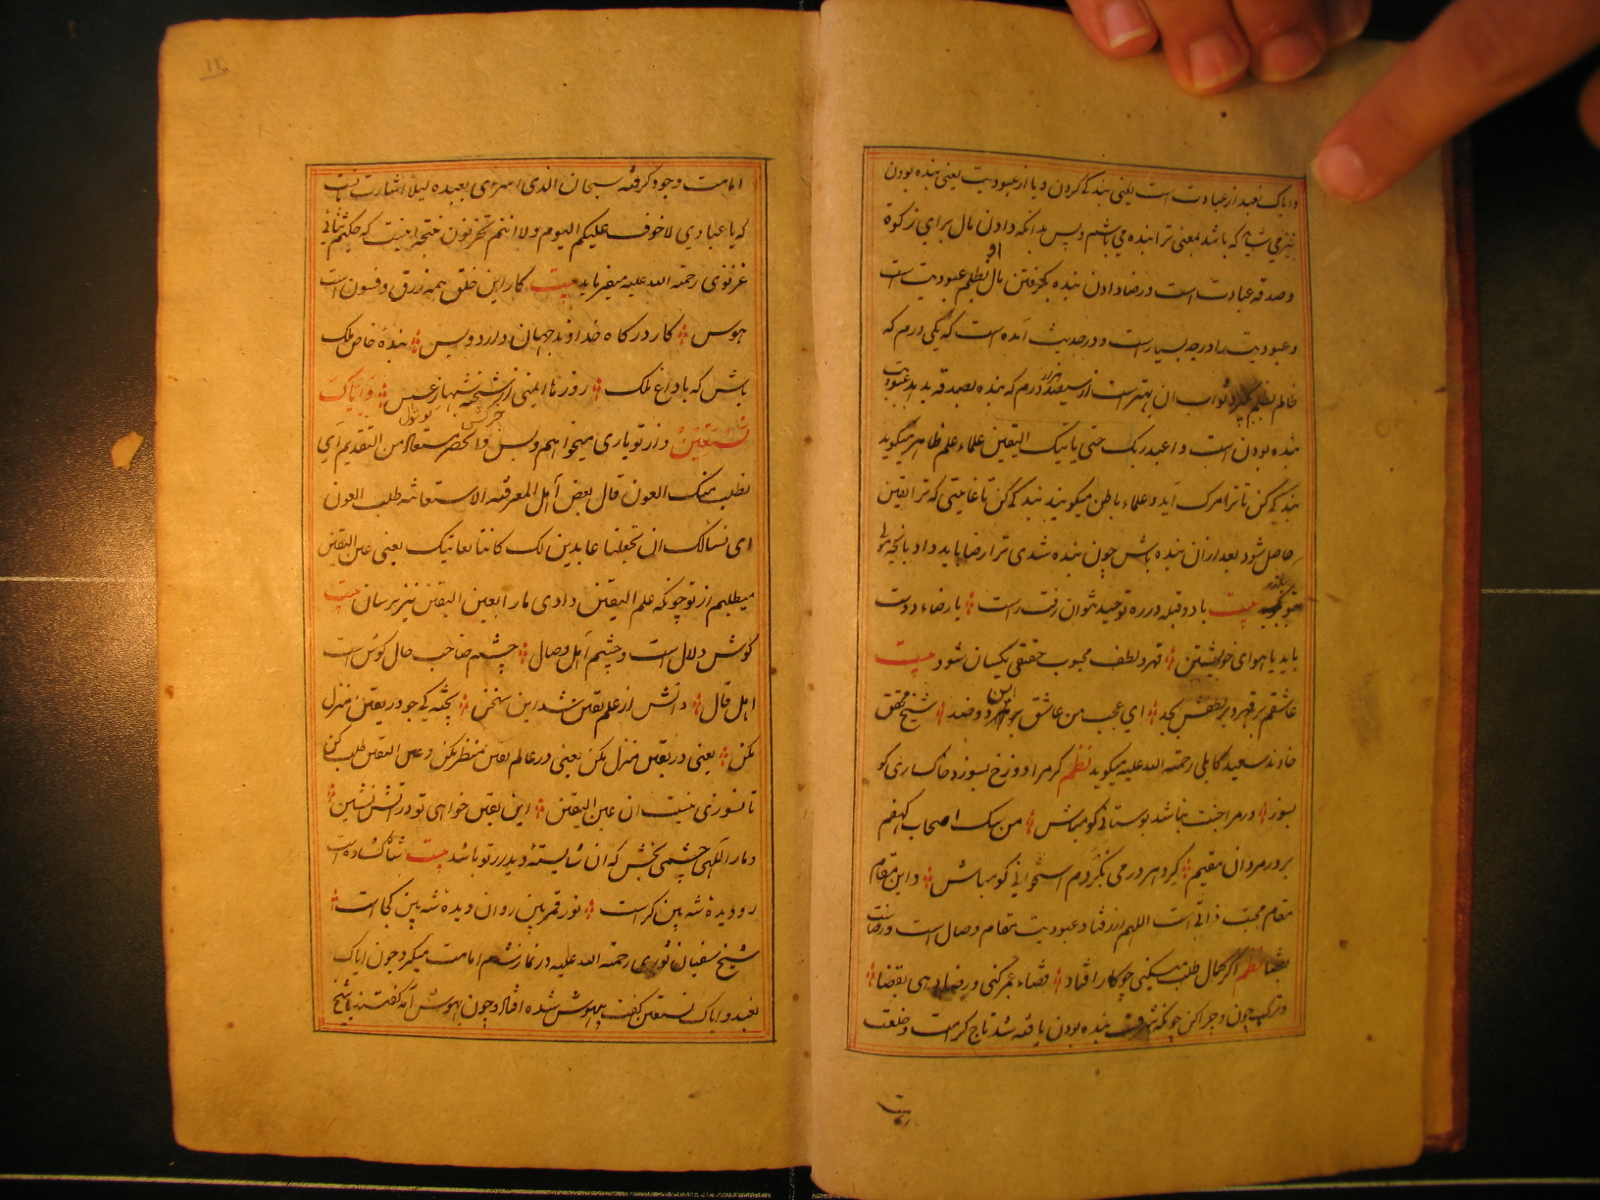 و ایاک نعبد از عبادت است یعنی بندگی کردن و یا از عبودیت یعنی بنده بودن
نیز می شاید که باشد بمعنی ترا بنده می باشم و بس بدانکه دادن مال برای زکوة
و صدقه عبادت است و رضا دادن بنده بگرفتن مال او بظلم عبودیت است
و عبودیت را درجه بسیار است و در حدیث آمده است که یکی درم که
ظالم بظلم گیرد ثواب ان بهتر است از سیصد هزار درم که بنده بصدقه بدهد عبودیت
بنده بودن است و اعبد ربک حتی یاتیک الیقین علماء علم ظاهر میگوید
بندگی کن تا ترا مرک آید و علماء باطن میگویند بندگی کن تا غایتی که ترا یقین
حاصل شود بعد از ان بنده باش چون بنده شدی ترا رضا باید داد بانچه مولی
بیت با دو قبله در ره توحید نتوان رفت راست یا رضاء دوست
باید یا هوای خویشتن قهر و لطف محبوب حقیقی یکسان شود بیت
عاشقم بر قهر و بر لطفش بجد ای عجب من عاشق این هر دو ضد شیخ محقق
خاوند سعید کابلی رحمة الله علیه میگوید نظم گر مرا دوزخ بسوزد خاکساری گو
بسوز ور مرا جنت نباشد بوستانی گو مباش من سک اصحاب کهفم
بر در مردان مقیم گرد هر در می نگردم استخوانی گو مباش و این مقام
مقام محبت ذاتی است اللهم ارزقنا و عبودیت مقام وصال است و رضا است
بقضا نظم اگر جمال طلب میکنی چو کار افتاد قضاء عمر کنی و رضا دهی بقضا
و ترک چون و چرا کن چونکه شرف بنده بودن یافته شد تاج کرامت و خلعت
امامت
۱۱
امامت وجود گرفته سبحان الذی اسری بعبده لیلا اشارت است
که یا عبادی لا خوف علیکم الیوم ولا انتم تحزنون نتیجه اینست که حکیم ثنائی
غزنوی رحمة الله علیه میفرماید بیت کار این خلق همه زرق و فسون است
هوس کار درگاه خداوند جهان دارد و بس بنده خاص ملک
باش که با داغ ملک روزها ایمنی از شحنه و شبها ز عسس وَاِیَّاکَ
نَسْتَعِینُ و از تو یاری میخواهم و بس و الحصر مستفاد من التقدیم ای
نطلب منک العون قال بعض اهل المعرفة الاستعانة طلب العون
ای نسالک ان تجعلنا عابدین لک کاننا نعاینک یعنی عین الیقین
میطلبم از تو چونکه علم الیقین دادی ما را بعین الیقین نیز برسان بیت
گوش دلال است و چشم اهل وصال چشم صاحب حال گوش است
اهل قال دانش از علم یقین شد این سخن پختگی جو در یقین منزل
مکن یعنی در یقین منزل مکن یعنی در عالم یقین منتظر مکن و عین الیقین طلب کن
تا نسوزی نیست ان عین الیقین این یقین خواهی تو در آتش نشین
و ما را الهی چشمی بخش که ان شایسته دیدار تو باشد بیت شاه گشاده است
رو دیده شه بین کراست نور قمر بین روان دیده شه بین کجاست
شیخ سفیان ثوری رحمة الله علیه در نماز شام امامت میکرد چون ایاک
نعبد و ایاک نستعین گفت بیهوش شده افتاد و چون بهوش آمد گفتند یا شیخ